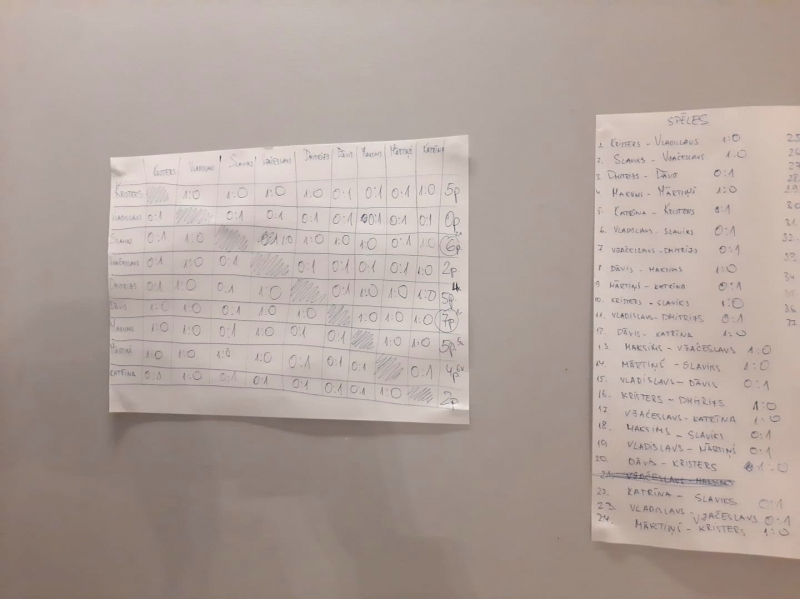 KRISTERS VLADISLAVS SLAVIKS VJAČESLAVS DMITRIJS DĀVIS MAKSIMS MĀRTIŅŠ KATRĪNA
KRISTERS 1:0 1:0 1:0 1:0 0:1 0:1 0:1 1:0 5p
VLADISLAVS 0:1 0:1 0:1 0:1 0:1 0:1 0:1 0:1 0p
SLAVIKS 0:1 1:0 1:0 1:0 1:0 1:0 0:1 1:0 6p
VJAČESLAVS 0:1 1:0 0:1 0:1 0:1 0:1 0:1 1:0 2p
DMITRIJS 0:1 1:0 0:1 1:0 0:1 1:0 1:0 1:0 5p
DĀVIS 1:0 1:0 0:1 1:0 1:0 1:0 1:0 1:0 7p
MAKSIMS 1:0 1:0 0:1 1:0 0:1 0:1 1:0 1:0 5p
MĀRTIŅŠ 1:0 1:0 1:0 1:0 0:1 0:1 0:1 0:1 4p
KATRĪNA 0:1 1:0 0:1 0:1 0:1 0:1 0:1 1:0 2p
SPĒLES
1. KRISTERS - VLADISLAVS 1:0
2. SLAVIKS - VJAČESLAVS 1:0
3. DMITRIJS - DĀVIS 0:1
4. MAKSIMS - MĀRTIŅŠ 1:0
5. KATRĪNA - KRISTERS 0:1
6. VLADISLAVS - SLAVIKS 0:1
7. VJAČESLAVS - DMITRIJS 0:1
8. DĀVIS - MAKSIMS 1:0
9. MĀRTIŅŠ - KATRĪNA 0:1
10. KRISTERS - SLAVIKS 1:0
11. VLADISLAVS - DMITRIJS 0:1
12. DĀVIS - KATRĪNA 1:0
13. MAKSIMS - VJAČESLAVS 1:0
14. MĀRTIŅŠ - SLAVIKS 1:0
15. VLADISLAVS - DĀVIS 0:1
16. KRISTERS - DMITRIJS 1:0
17. VJAČESLAVS - KATRĪNA 1:0
18. MAKSIMS - SLAVIKS 0:1
19. VLADISLAVS - MĀRTIŅŠ 0:1
20. DĀVIS - KRISTERS 1:0
21. VJAČESLAVS - MAKSIMS
22. KATRĪNA - SLAVIKS 0:1
23. VLADISLAVS - VJAČESLAVS 0:1
24. MĀRTIŅŠ - KRISTERS 1:0
25
26
27
28
29
30
31.
32.
33.
34
35
36
37.